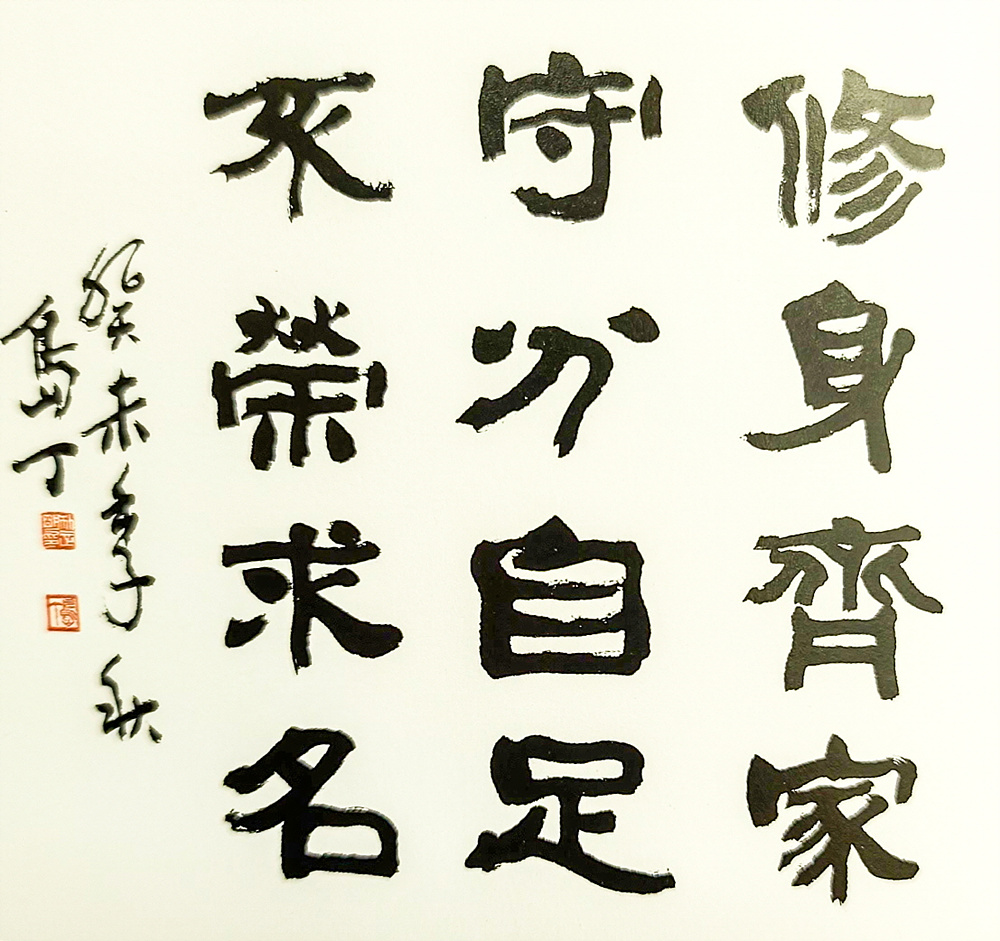 修身齊家
守分自足
不榮求名
癸未季秋
島丁